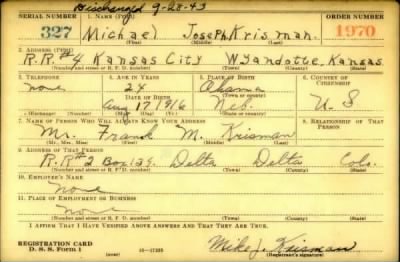 Discharged 9-28-43
SERIAL NUMBER 1. NAME (Print) ORDER NUMBER
327 Michael Joseph Krisman. 1970
(First) (Middle) (Last)
2. ADDRESS (Print)
R.R.#4 Kansas City Wyandotte, Kansas.
(Number and street or R. F. D. number) (Town) (County) (State)
3. TELEPHONE 4. AGE IN YEARS 5. PLACE OF BIRTH 6. COUNTRY OF CITIZENSHIP
none 24 Ohama
DATE OF BIRTH (Town or county)
Aug 17 1916 Neb. U S
(Exchange) (Number) (Mo.) (Day) (Yr.) (State or country)
7. NAME OF PERSON WHO WILL ALWAYS KNOW YOUR ADDRESS 8. RELATIONSHIP OF THAT PERSON
Mr. Frank M. Krisman
(Mr., Mrs., Miss) (First) (Middle) (Last)
9. ADDRESS OF THAT PERSON
R.R#2 Box 139. Delta Delta Colo.
(Number and street or R. F. D. number) (Town) (County) (State)
10. EMPLOYER'S NAME
None
11. PLACE OF EMPLOYMENT OR BUSINESS
none
(Number and street or R. F. D. number) (Town) (County) (State)
I AFFIRM THAT I HAVE VERIFIED ABOVE ANSWERS AND THAT THEY ARE TRUE.
REGISTRATION CARD
D. S. S. Form 1 (over) 16-17105 Mike J. Krisman
(Registrant's signature)